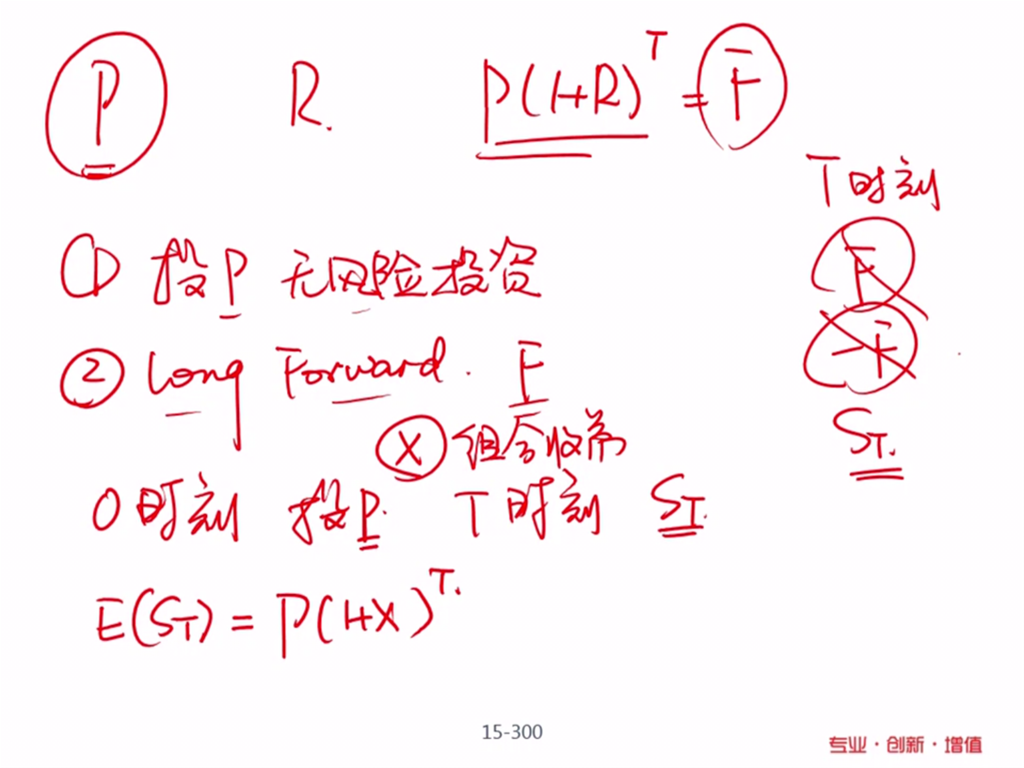 P R. P(1+R)^T = F
T时刻
① 投P 无风险投资 F
② Long Forward. F -F
X 组合收益 S_T.
0时刻 投P. T时刻 S_T.
E(S_T) = P(1+X)^T.
15-300
专业·创新·增值